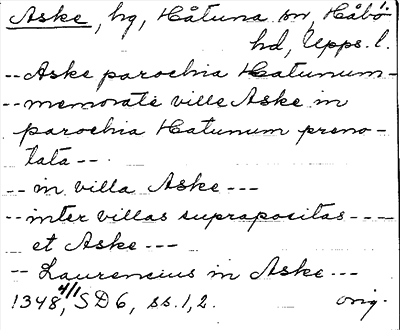 Aske, hg, Håtuna sn, Håbo
hd, Upps. l.
-- Aske parochia Hatunum --
-- memorate ville Aske in
parochia Hatunum preno-
tata --
-- in villa Aske ---
-- inter villas suprapositas ----
et Aske ---
-- Laurencius in Aske ---
1348 4/1, SD 6, ss. 1, 2. orig.